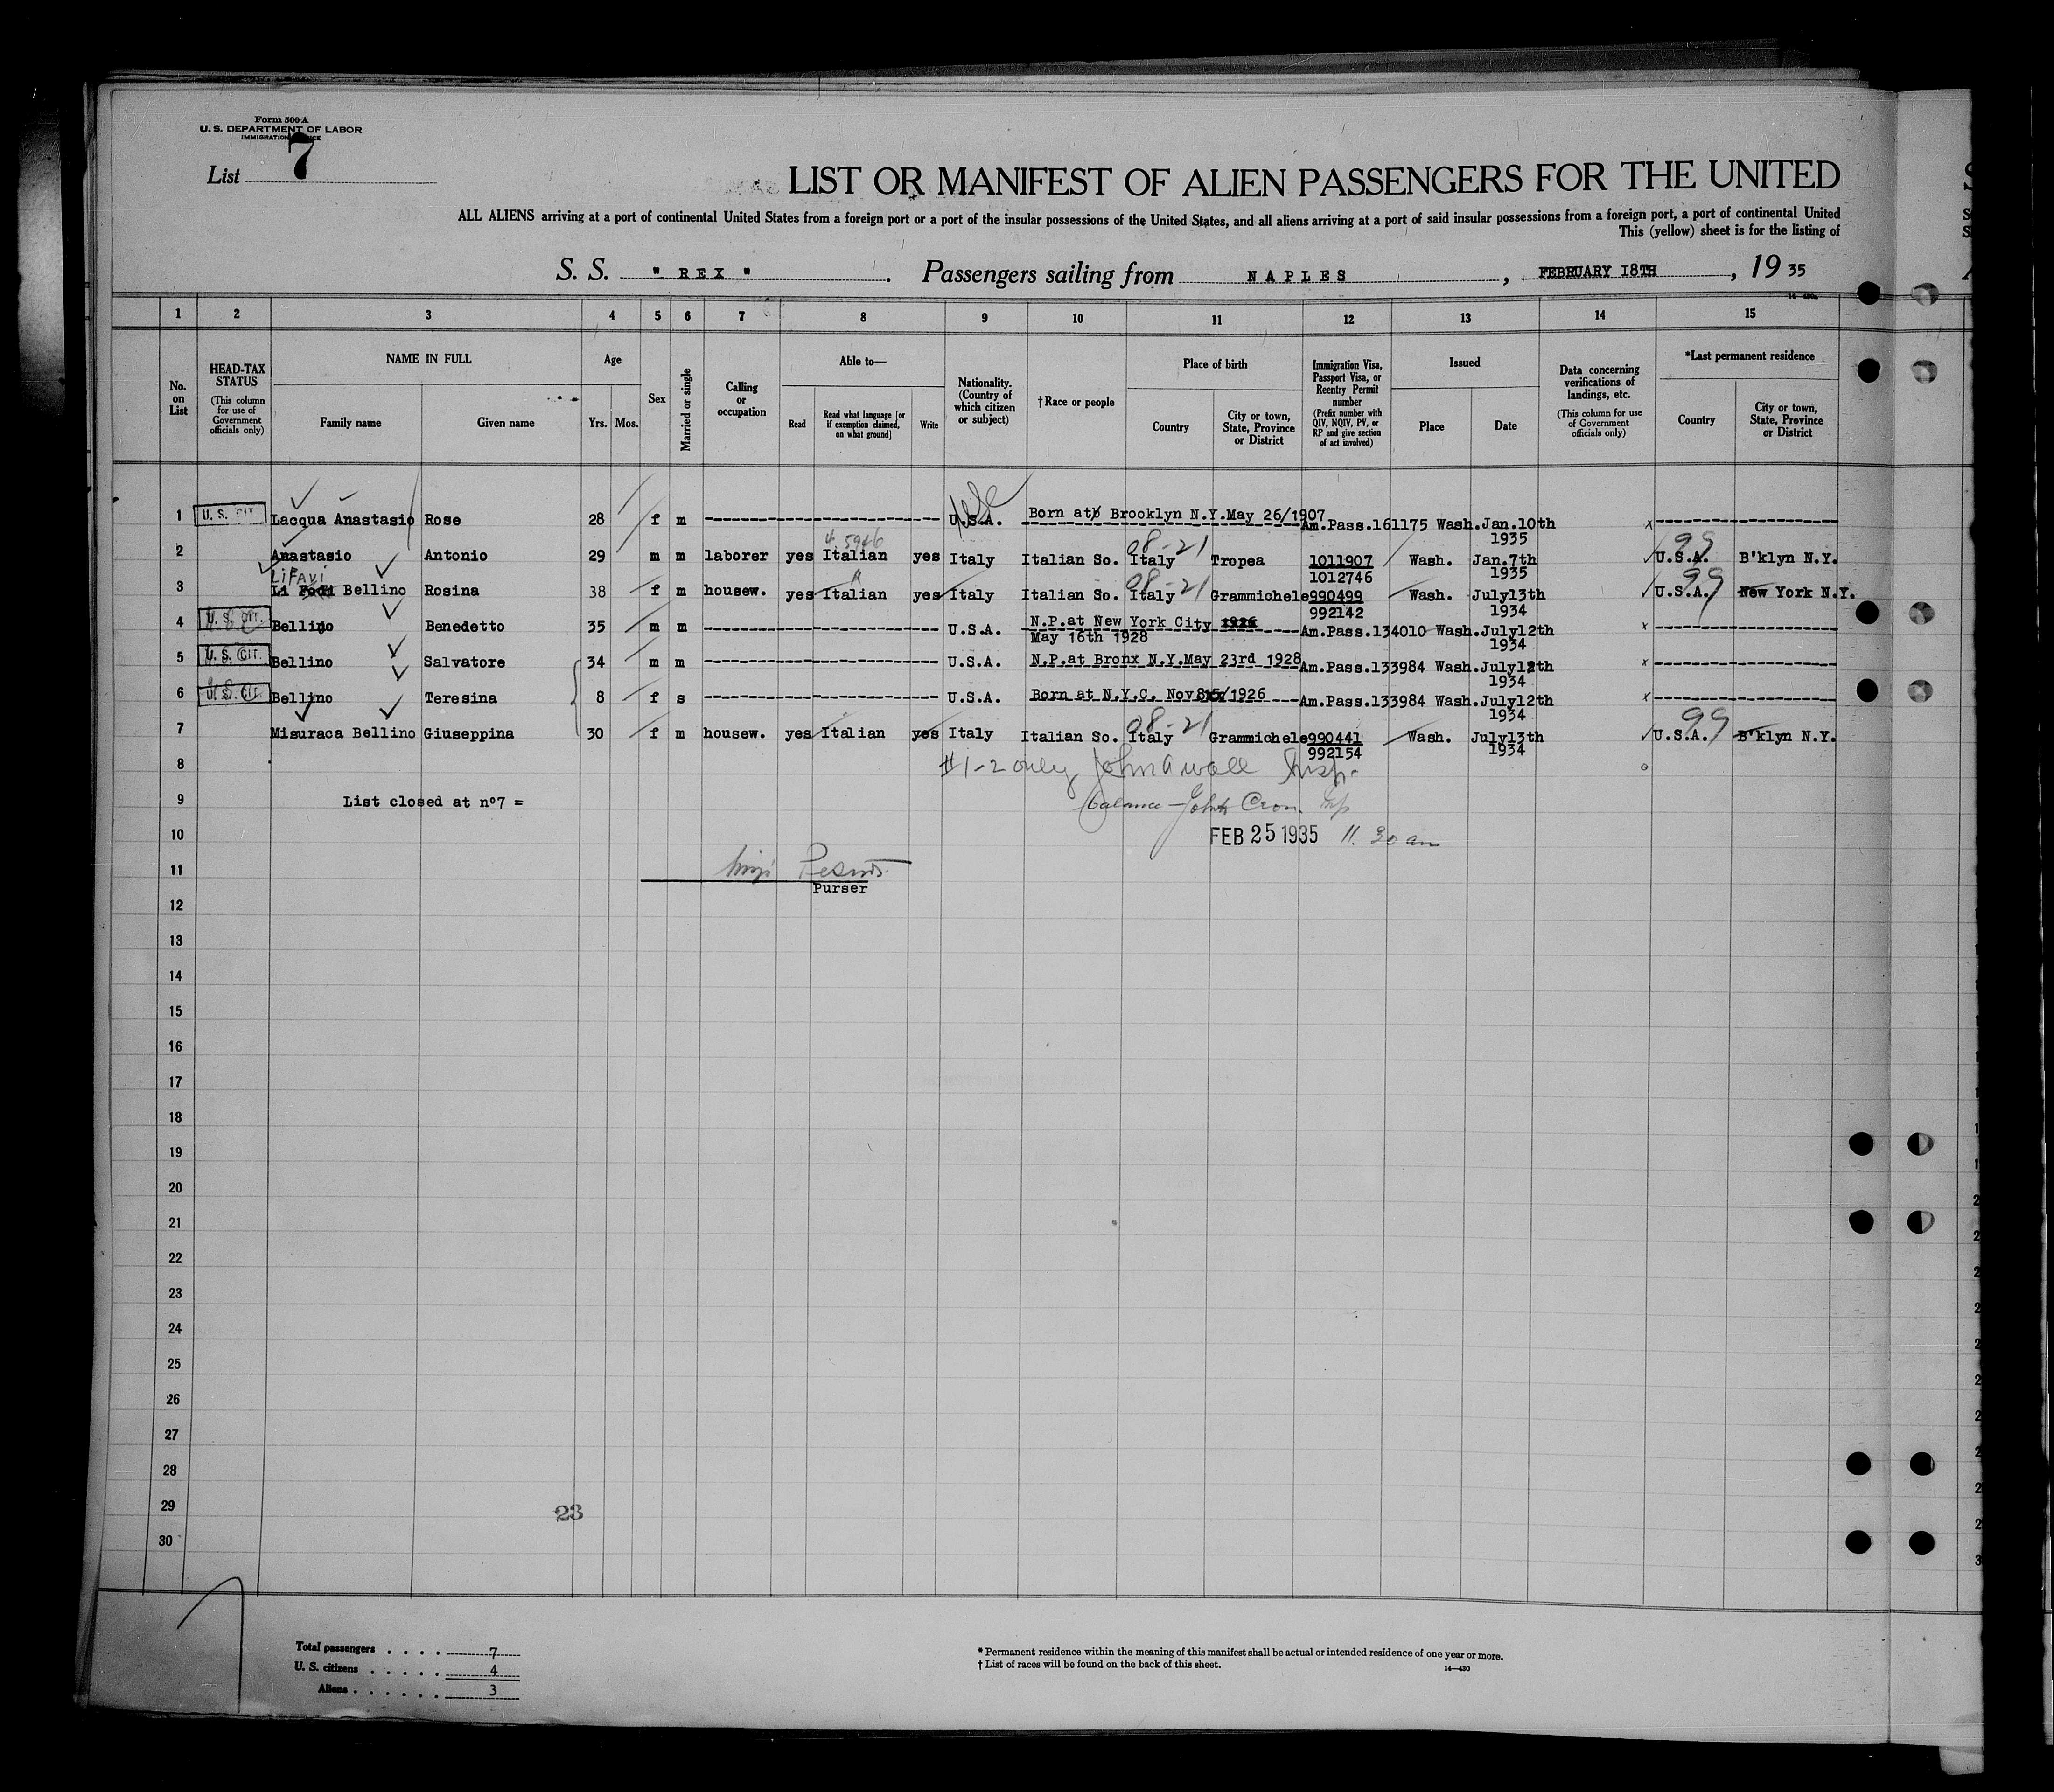 Form 500 A
U. S. DEPARTMENT OF LABOR
IMMIGRATION SERVICE
List 7
LIST OR MANIFEST OF ALIEN PASSENGERS FOR THE UNITED
ALL ALIENS arriving at a port of continental United States from a foreign port or a port of the insular possessions of the United States, and all aliens arriving at a port of said insular possessions from a foreign port, a port of continental United
This (yellow) sheet is for the listing of
S. S. " REX ". Passengers sailing from NAPLES, FEBRUARY 18TH, 19 35
1 2 3 4 5 6 7 8 9 10 11 12 13 14 15
No. on List
HEAD-TAX STATUS (This column for use of Government officials only)
NAME IN FULL Family name Given name
Age Yrs. Mos.
Sex
Married or single
Calling or occupation
Able to— Read Read what language [or if exemption claimed, on what ground] Write
Nationality. (Country of which citizen or subject)
†Race or people
Place of birth Country City or town, State, Province or District
Immigration Visa, Passport Visa, or Reentry Permit number (Prefix number with QIV, NQIV, PV, or RP and give section of act involved)
Issued Place Date
Data concerning verifications of landings, etc. (This column for use of Government officials only)
*Last permanent residence Country City or town, State, Province or District
1 U. S. CIT. Lacqua Anastasio Rose 28 f m U.S.A. Born at Brooklyn N.Y.May 26/1907 Am.Pass.161175 Wash.Jan.10th 1935 x
2 Anastasio Antonio 29 m m laborer yes Italian yes Italy Italian So. Italy 08-21 Tropea 1011907 1012746 Wash. Jan.7th 1935 U.S.A. 99 B'klyn N.Y.
3 LiFavi Li Fodi Bellino Rosina 38 f m housew. yes Italian yes Italy Italian So. Italy 08-21 Grammichele 990499 992142 Wash. July13th 1934 U.S.A. 99 New York N.Y.
4 U. S. CIT. Bellino Benedetto 35 m m U.S.A. N.P.at New York City 1926 May 16th 1928 Am.Pass.134010 Wash.July12th 1934 x
5 U. S. CIT. Bellino Salvatore 34 m m U.S.A. N.P.at Bronx N.Y.May 23rd 1928 Am.Pass.133984 Wash.July12th 1934 x
6 U. S. CIT. Bellino Teresina 8 f s U.S.A. Born at N.Y.C. Nov 15/1926 Am.Pass.133984 Wash.July12th 1934 x
7 Misuraca Bellino Giuseppina 30 f m housew. yes Italian yes Italy Italian So. Italy 08-21 Grammichele 990441 992154 Wash. July13th 1934 U.S.A. 99 B'klyn N.Y.
8 #1-2 only John A Wall Insp.
9 List closed at nº7 = balance - John Cron Insp
10 FEB 25 1935 11.30 am
11
Purser
12
13
14
15
16
17
18
19
20
21
22
23
24
25
26
27
28
29
30
23
Total passengers . . . . 7
U. S. citizens . . . . . 4
Aliens . . . . . . 3
* Permanent residence within the meaning of this manifest shall be actual or intended residence of one year or more.
† List of races will be found on the back of this sheet.
14—430